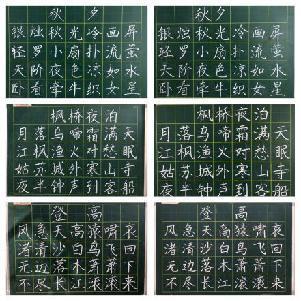 秋夕
银烛秋光冷画屏
轻罗小扇扑流萤
天阶夜色凉如水
卧看牵牛织女星
秋夕
银烛秋光冷画屏
轻罗小扇扑流萤
天阶夜色凉如水
卧看牵牛织女星
枫桥夜泊
月落乌啼霜满天
江枫渔火对愁眠
姑苏城外寒山寺
夜半钟声到客船
枫桥夜泊
月落乌啼霜满天
江枫渔火对愁眠
姑苏城外寒山寺
夜半钟声到客船
登高
风急天高猿啸哀
渚清沙白鸟飞回
无边落木萧萧下
不尽长江滚滚来
登高
风急天高猿啸哀
渚清沙白鸟飞回
无边落木萧萧下
不尽长江滚滚来